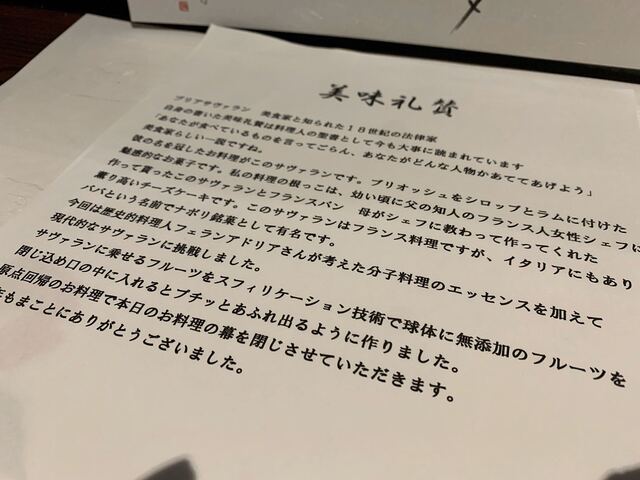 美味礼賛
ブリアサヴァラン 美食家と知られた18世紀の法律家
自身の書いた美味礼賛は料理人の聖書として今も大事に読まれています
「あなたが食べているものを言ってごらん、あなたがどんな人物かあててあげよう」
美食家らしい一説ですね。
彼の名を冠したお料理がこのサヴァランです。ブリオッシュをシロップとラムに付けた
魅惑的なお菓子です。私の料理の根っこは、幼い頃に父の知人のフランス人女性シェフに
作って貰ったこのサヴァランとフランスパン 母がシェフに教わって作ってくれた
薫り高いチーズケーキです。このサヴァランはフランス料理ですが、イタリアにもあり
ババという名前でナポリ銘菓として有名です。
今回は歴史的料理人フェランアドリアさんが考えた分子料理のエッセンスを加えて
現代的なサヴァランに挑戦しました。
サヴァランに乗せるフルーツをスフィリケーション技術で球体に無添加のフルーツを
閉じ込め口の中に入れるとプチッとあふれ出るように作りました。
原点回帰のお料理で本日のお料理の幕を閉じさせていただきます。
もまことにありがとうございました。